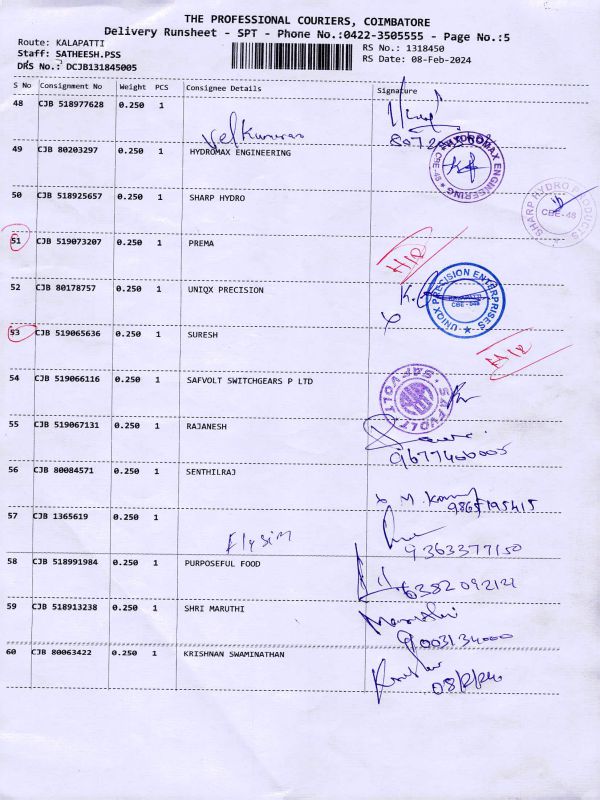 THE PROFESSIONAL COURIERS, COIMBATORE
Delivery Runsheet - SPT - Phone No.:0422-3505555 - Page No.:5
Route: KALAPATTI
Staff: SATHEESH.PSS
DRS No.: DCJB131845005
RS No.: 1318450
RS Date: 08-Feb-2024
S No Consignment No Weight PCS Consignee Details Signature
48 CJB 518977628 0.250 1
Velkumaran
49 CJB 80203297 0.250 1 HYDROMAX ENGINEERING
HYDROMAX ENGINEERING CBE-48
50 CJB 518925657 0.250 1 SHARP HYDRO
SHARP HYDRO PRODUCTS CBE-48
51 CJB 519073207 0.250 1 PREMA
52 CJB 80178757 0.250 1 UNIQX PRECISION
UNIQX PRECISION ENTERPRISES
53 CJB 519065636 0.250 1 SURESH
54 CJB 519066116 0.250 1 SAFVOLT SWITCHGEARS P LTD
SAFVOLT SAFVOLT
55 CJB 519067131 0.250 1 RAJANESH
9677400005
56 CJB 80084571 0.250 1 SENTHILRAJ
9865195415
57 CJB 1365619 0.250 1
9363377150
58 CJB 518991984 0.250 1 PURPOSEFUL FOOD
6382092122
59 CJB 518913238 0.250 1 SHRI MARUTHI
Maruthi
9003134000
60 CJB 80063422 0.250 1 KRISHNAN SWAMINATHAN